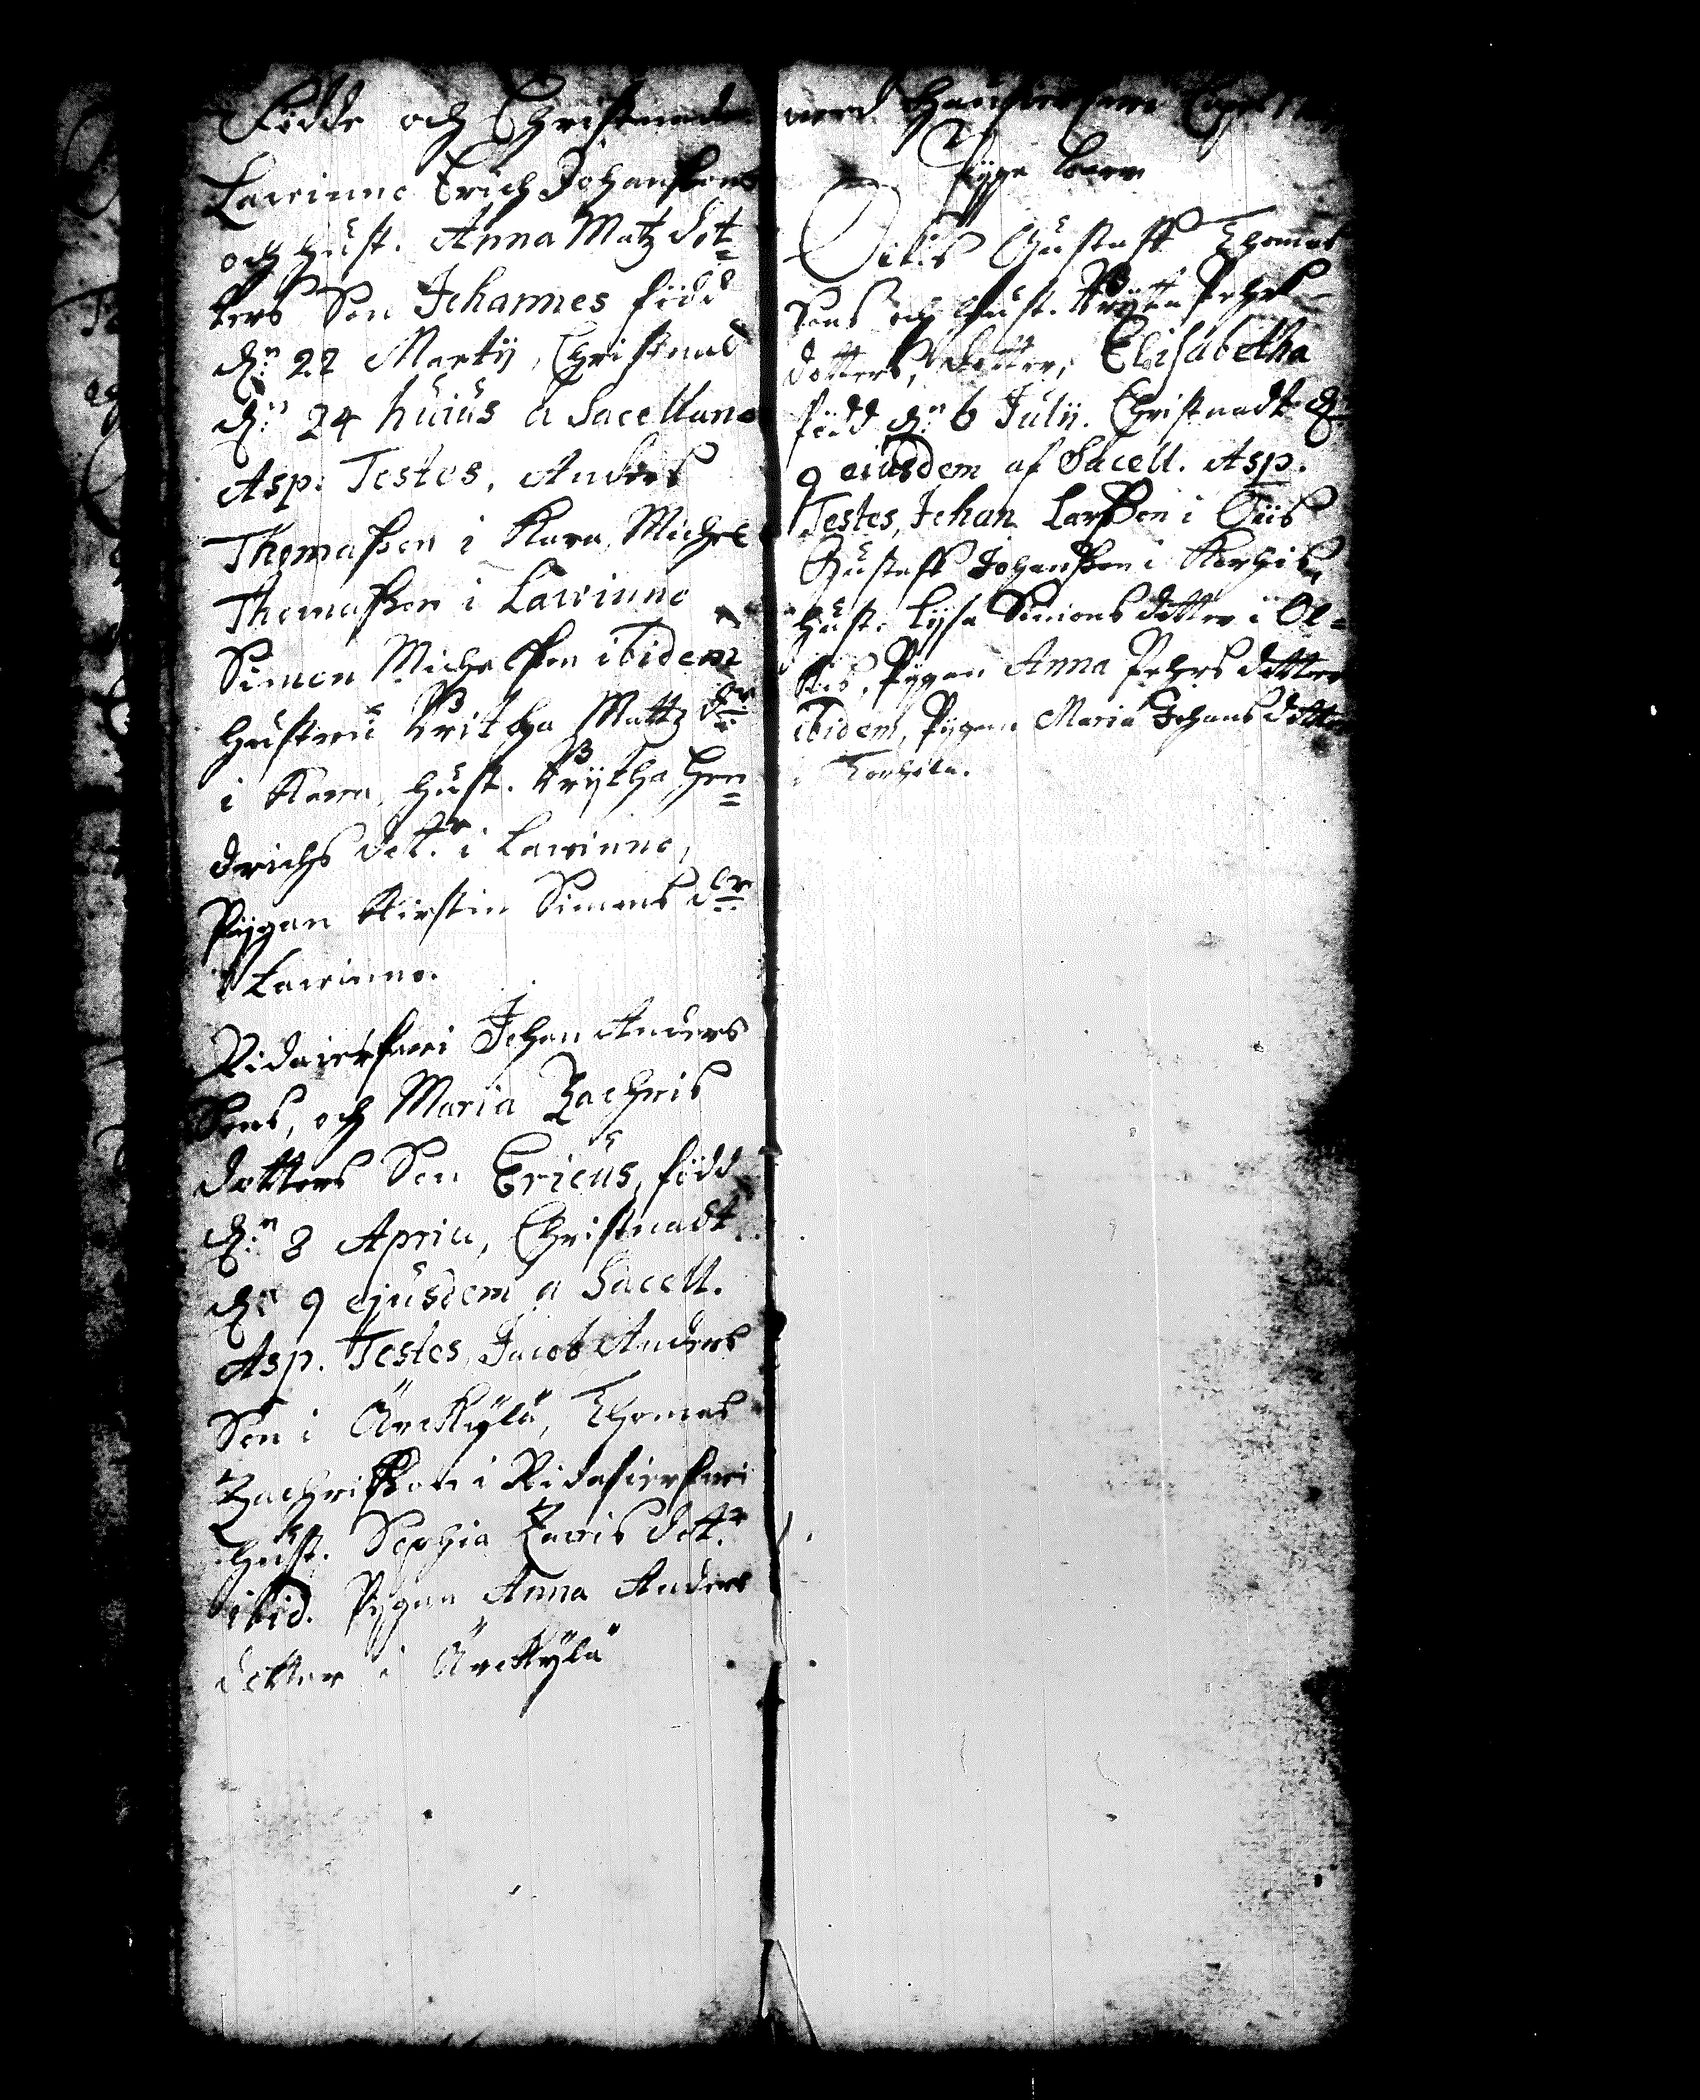 Födde och Christnade
Lawinno Erich Johanssons
och Hust. Anna Matz dot=
ters Son Johannes född
dn: 22 Martij, Christnad
dn: 24 hujus a Sacellano
Asp: Testes, Anders
Thomasson i Kara, Michel
Thomasson i Lawinno
Simon Michelsson ibidem
Hustru Britha Mattz dr
i Kara, Hust. Brytha Hen=
drichs dotr. i Lawinno,
Pygan Kirstin Simons dr
i Lawinno.
Johan Anders
Sons, och Maria Zachris
dotters Son Ericus, född
dn: 8 April, Christnadt
dn: 9 ejusdem a Sacell.
Asp. Testes, Jacob Anders
Son i Äräkylä, Thomas
Zachrisson i
Hust. Sophia dotr.
ibid. Pygan Anna Anders
dotter i Äräkylä
wed Capell
Pyge barn
Gustaff Thomas
Sons och Hust. Brytta Pehrs
dotters, dotter, Elisabetha
född dn: 6 Julij. Christnadt dn
9 eiusdem af Sacell. Asp.
Testes, Johan Larsson i
Gustaff Johansson i
Hust. Lysa Simons dotter i Ol=
kis, Pygan Anna Pehrs dotter
ibidem, Pygan Maria Johans dotter
i